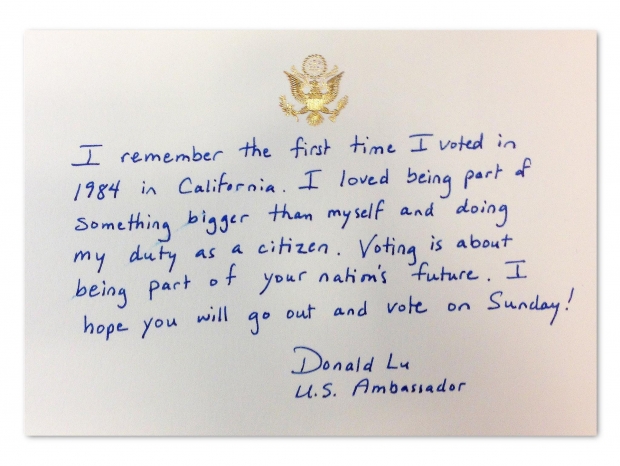 I remember the first time I voted in
1984 in California. I loved being part of
something bigger than myself and doing
my duty as a citizen. Voting is about
being part of your nation's future. I
hope you will go out and vote on Sunday!
Donald Lu
U.S. Ambassador